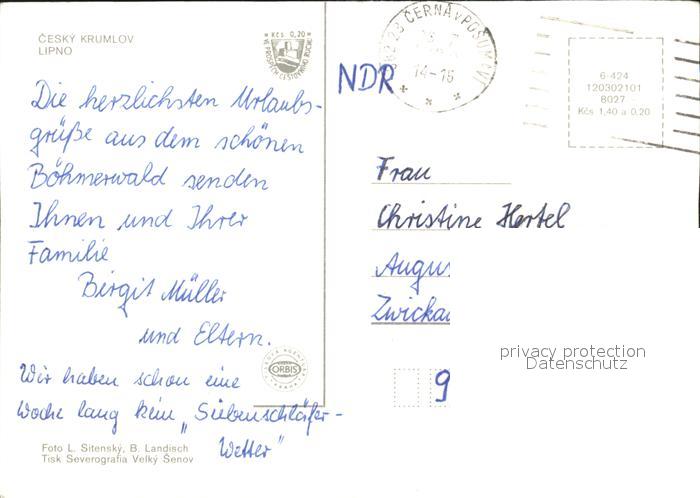 ČESKÝ KRUMLOV
LIPNO
Kčs 0,20
VE PROSPĚCH CESTOVNÍHO RUCHU
Die herzlichsten Urlaubs-
grüße aus dem schönen
Böhmerwald senden
Ihnen und Ihrer
Familie
Birgit Müller
und Eltern.
Wir haben schon eine
Woche lang kein „Siebenschläfer-
Wetter"
ORBIS
Foto L. Sitenský, B. Landisch
Tisk Severografia Velký Šenov
ČERNÁ v POŠUMAVÍ
14-16
NDR
6-424
120302101
8027
Kčs 1,40 a 0,20
Frau
Christine Hertel
Augus
Zwickau
9
privacy protection
Datenschutz